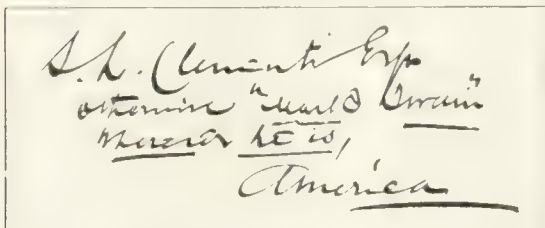 S. L. Clements Esq
otherwise "Mark Twain"
Wherever he is,
America